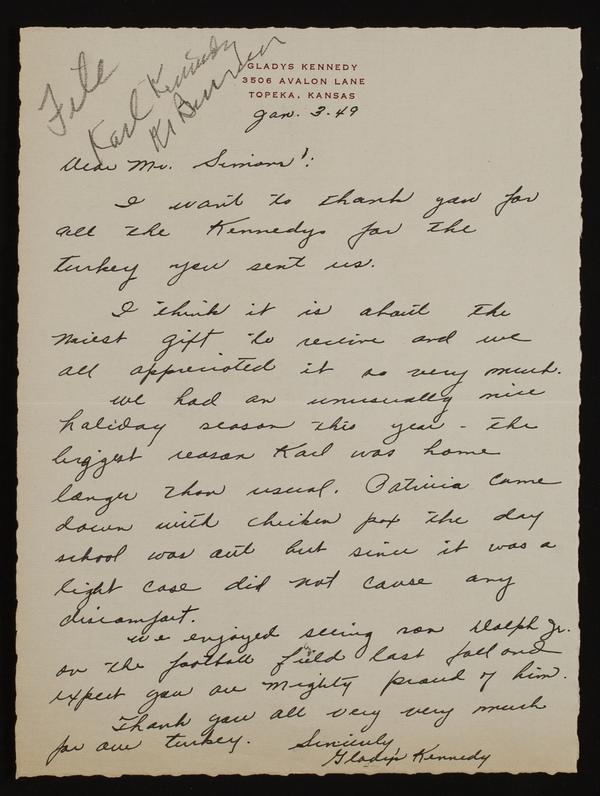 File
Karl Kennedy
GLADYS KENNEDY
3506 AVALON LANE
TOPEKA, KANSAS
Jan. 3-49
Dear Mr. Simons':
I want to thank you for
all the Kennedys for the
turkey you sent us.
I think it is about the
nicest gift to receive and we
all appreciated it so very much.
We had an unusually nice
holiday season this year - the
biggest reason Karl was home
longer than usual. Patricia came
down with chicken pox the day
school was out but since it was a
light case did not cause any
discomfort.
We enjoyed seeing son Dolph Jr.
on the football field last fall and
expect you are mighty proud of him.
Thank you all very very much
for our turkey. Sincerely
Gladys Kennedy